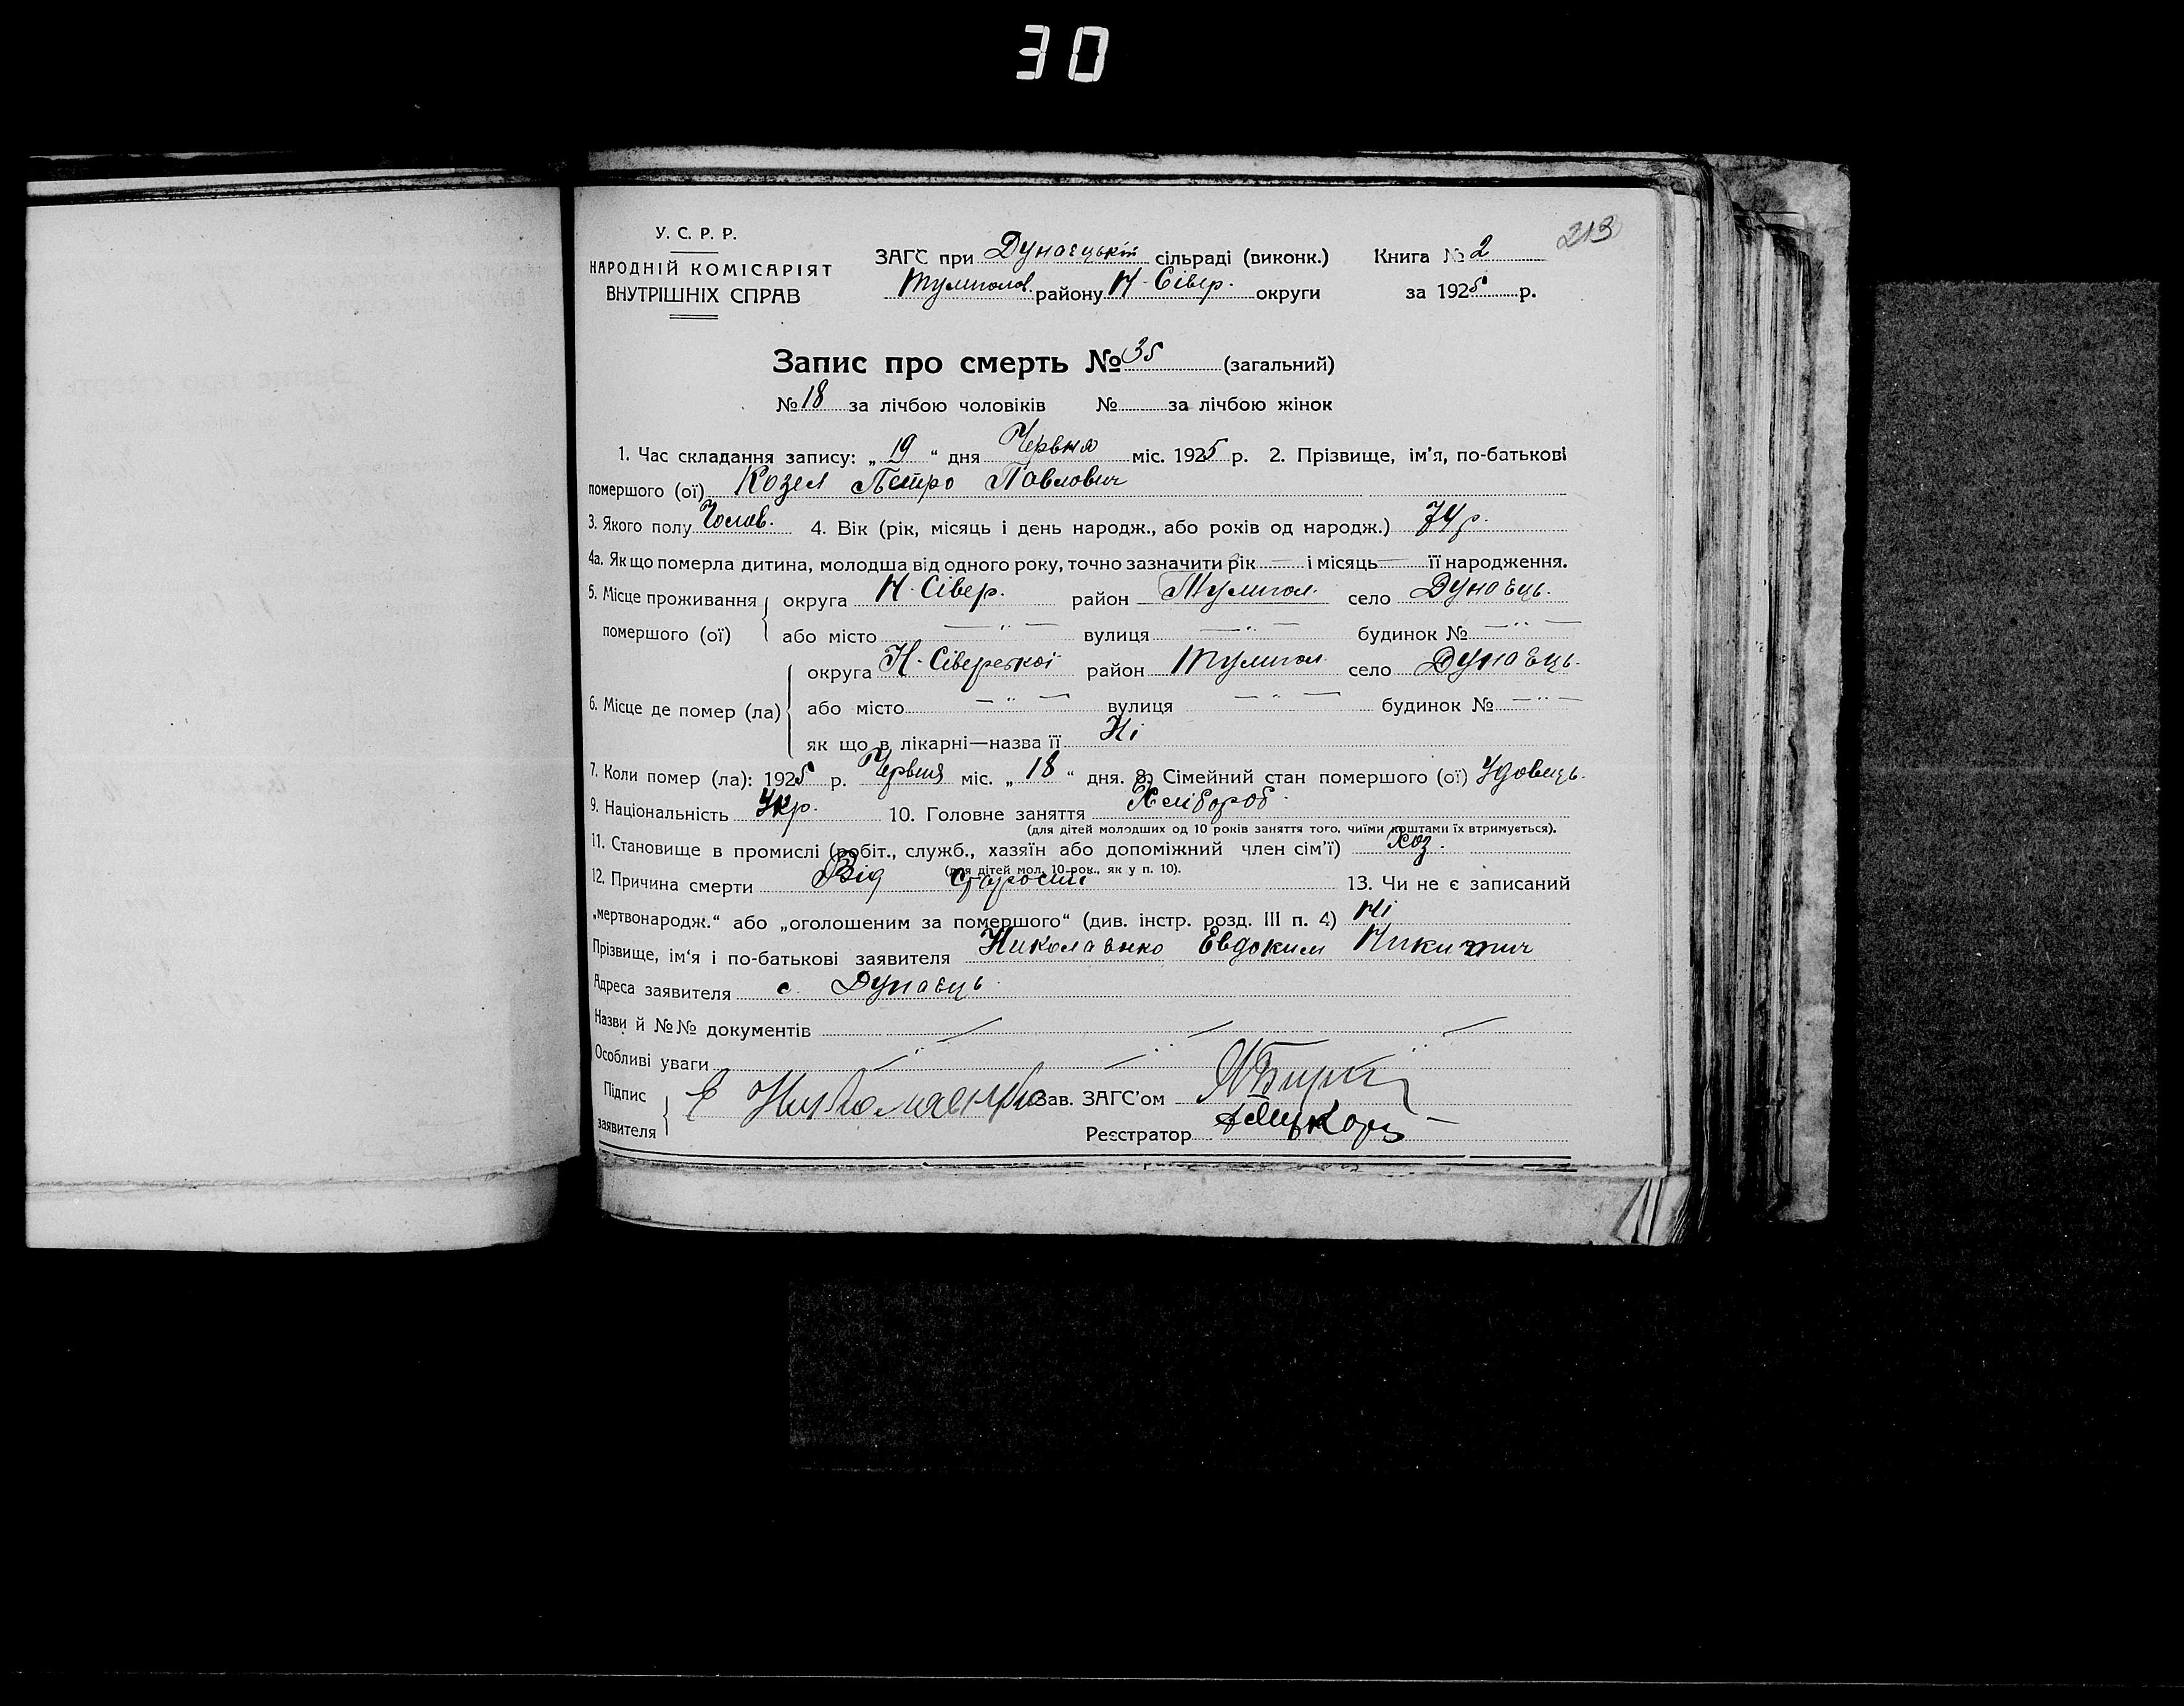 30
213
У. С. Р. Р.
НАРОДНІЙ КОМІСАРІЯТ
ВНУТРІШНІХ СПРАВ
ЗАГС при Дунаєцькій сільраді (виконк.) Книга № 2
району Н-Сівер. округи за 1925 р.
Запис про смерть № 35 (загальний)
№ 18 за лічбою чоловіків № за лічбою жінок
1. Час складання запису: „ 19 “ дня Червня міс. 1925 р. 2. Прізвище, ім'я, по-батькові
помершого (ої) Козел Петро Павлович
3. Якого полу Чолов. 4. Вік (рік, місяць і день народж., або років од народж.) 74 р.
4а. Як що померла дитина, молодша від одного року, точно зазначити рік — і місяць — її народження.
5. Місце проживання округа Н-Сівер. район село Дунаєць.
помершого (ої) або місто — " — вулиця — " — будинок № — " —
округа Н-Сіверської район село Дунаєць.
6. Місце де помер (ла) або місто — " — вулиця — " — будинок № — " —
як що в лікарні—назва її Ні
7. Коли помер (ла): 1925 р. Червня міс. „ 18 “ дня. 8. Сімейний стан помершого (ої) Удовець.
9. Національність Укр. 10. Головне заняття Хлібороб.
(для дітей молодших од 10 років заняття того, чиїми коштами їх втримується).
11. Становище в промислі (робіт., служб., хазяїн або допоміжний член сім'ї) Хоз.
(для дітей мол. 10 рок., як у п. 10).
12. Причина смерти Від старости 13. Чи не є записаний
„мертвонародж.“ або „оголошеним за помершого“ (див. інстр. розд. III п. 4) Ні
Прізвище, ім'я і по-батькові заявителя Николаєнко Евдоким Никитич
Адреса заявителя с. Дунаєць.
Назви й №№ документів —
Особливі уваги — " —
Підпис
заявителя Е Николаєнко Зав. ЗАГС'ом
Реєстратор